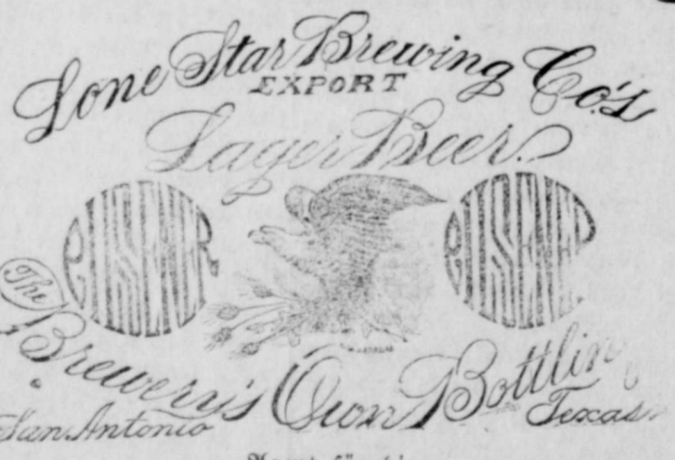 Lone Star Brewing Co.'s
EXPORT
Lager Beer.
The
Brewery's Own Bottlin
San Antonio Texas